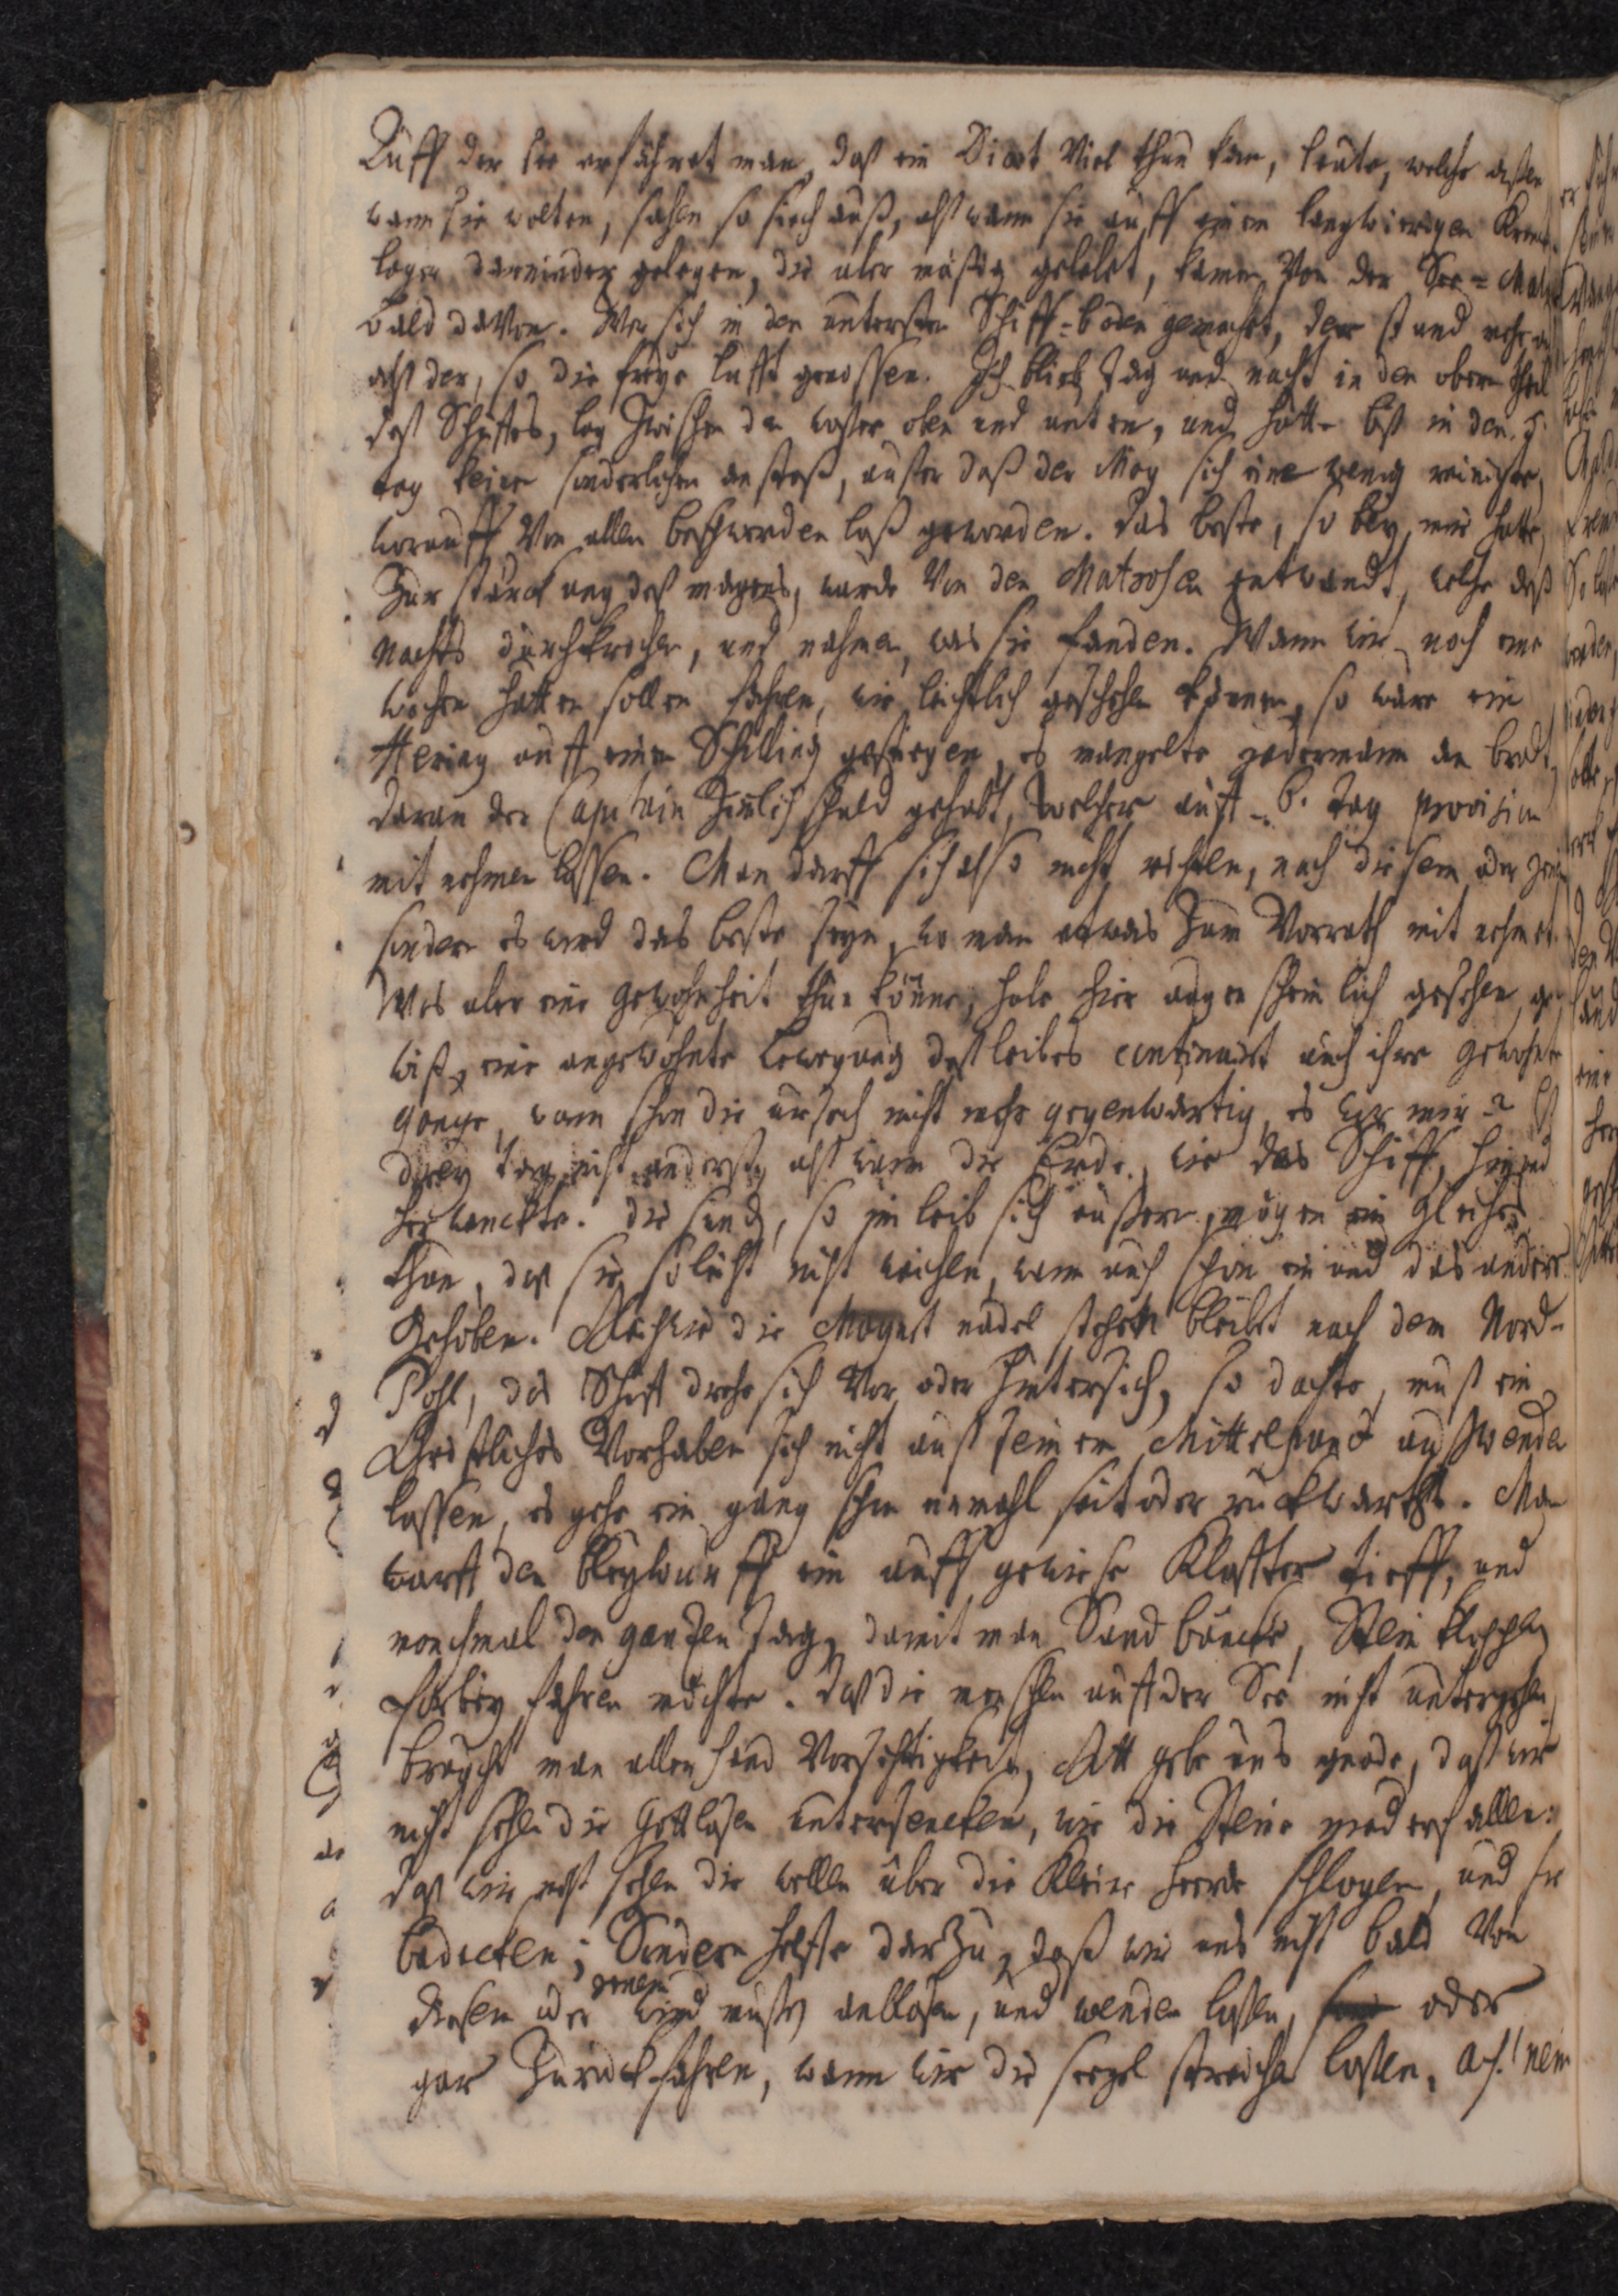 Auff der See erfähret man, daß ein Diaet Viel thun kan, leute, welche aßen
wann sie wolten, sahen so siech auß, alß wann sie auff einem langwierigen Kran-
lager darnieder gelegen, die aber mäßig gelebet, kamen Von der See-
bald davon. Wer sich in den untersten Schiff-boden gemacht, der stund mehr
alß der, so die freye lufft genossen. Ich blieb tag und nacht in dem obern theil
deß Schiffes, lag Zwischen dem waßer oben und unten, und hatte biß in den
tag keinen sonderlichen anstoß, außer daß der Mag sich ein wenig reinigte,
worauff Von allen beschwerden loß geworden. das beste, so bey mir hatte,
Zur stärckung deß magens, wurde Von den Matrosen entwandt, welche deß
Nachts durchkrochen, und nahmen, was sie fanden. Wann wir noch eine
wochen hätten sollen fahren, wie leichtlich geschehen können, so wäre ein
Hering auff einen Schilling gestiegen, es mangelte jederman an brodt,
daran der Captain Zimlich schuld gehabt, welcher auff 6. tag provision
mit nehmen lassen. Man darff sich also nicht richten, nach diesem oder jenem
sondern es wird das beste seyn, wo man etwas Zum Vorrath mit nehmet.
Was aber eine gewohnheit thun könne, habe hier augenscheinlich gesehen, ge-
wiß, eine angewohnte bewegung deß leibes continuirt auch ihre gewohnte
gänge, wann schon die ursach nicht mehr gegenwärtig, es war mir 2 biß
drey tag nicht anderst, alß wann die Erde, wie das Schiff, hin und
her wanckte. die sünd, so im leib sich äußern, mögen ein gleiches
thun, daß sie so leicht nicht weichen, wann auch schon ein und das andere
gehoben. Gleichwie die Magnet nadel stehen bleibt nach dem Nord-
Pohl, das Schiff drehe sich Vor oder hintersich, so dachte, muß ein
Christliches Vorhaben sich nicht auß seinem Mittelpunct außwenden
lassen, es gehe ein gang schon einmahl seit oder ruckwärts. Man
warff den bleywurff ein auff gewiese Klaffter tieff, und
manchmal den gantzen tag, damit man Sand bäncke, Stein klippen
forbey fahren möchte. Daß die menschen auff der See nicht untergehen,
braucht man allerhand Vorsichtigkeit, Gott gebe uns gnade, daß wir
nicht sehen die Gottlosen untersencken, wie die Steine niederfallen:
daß wir nicht sehen die wellen über die Kleine heerde schlagen, und sie
bedecken; Sondern helffe darzu, daß wir uns nicht bald Von
diesem oder jenem wind müsse anblasen, und wenden laßen, oder
gar Zurück fahren, wann wir die seegel streichen laßen, ach! nein